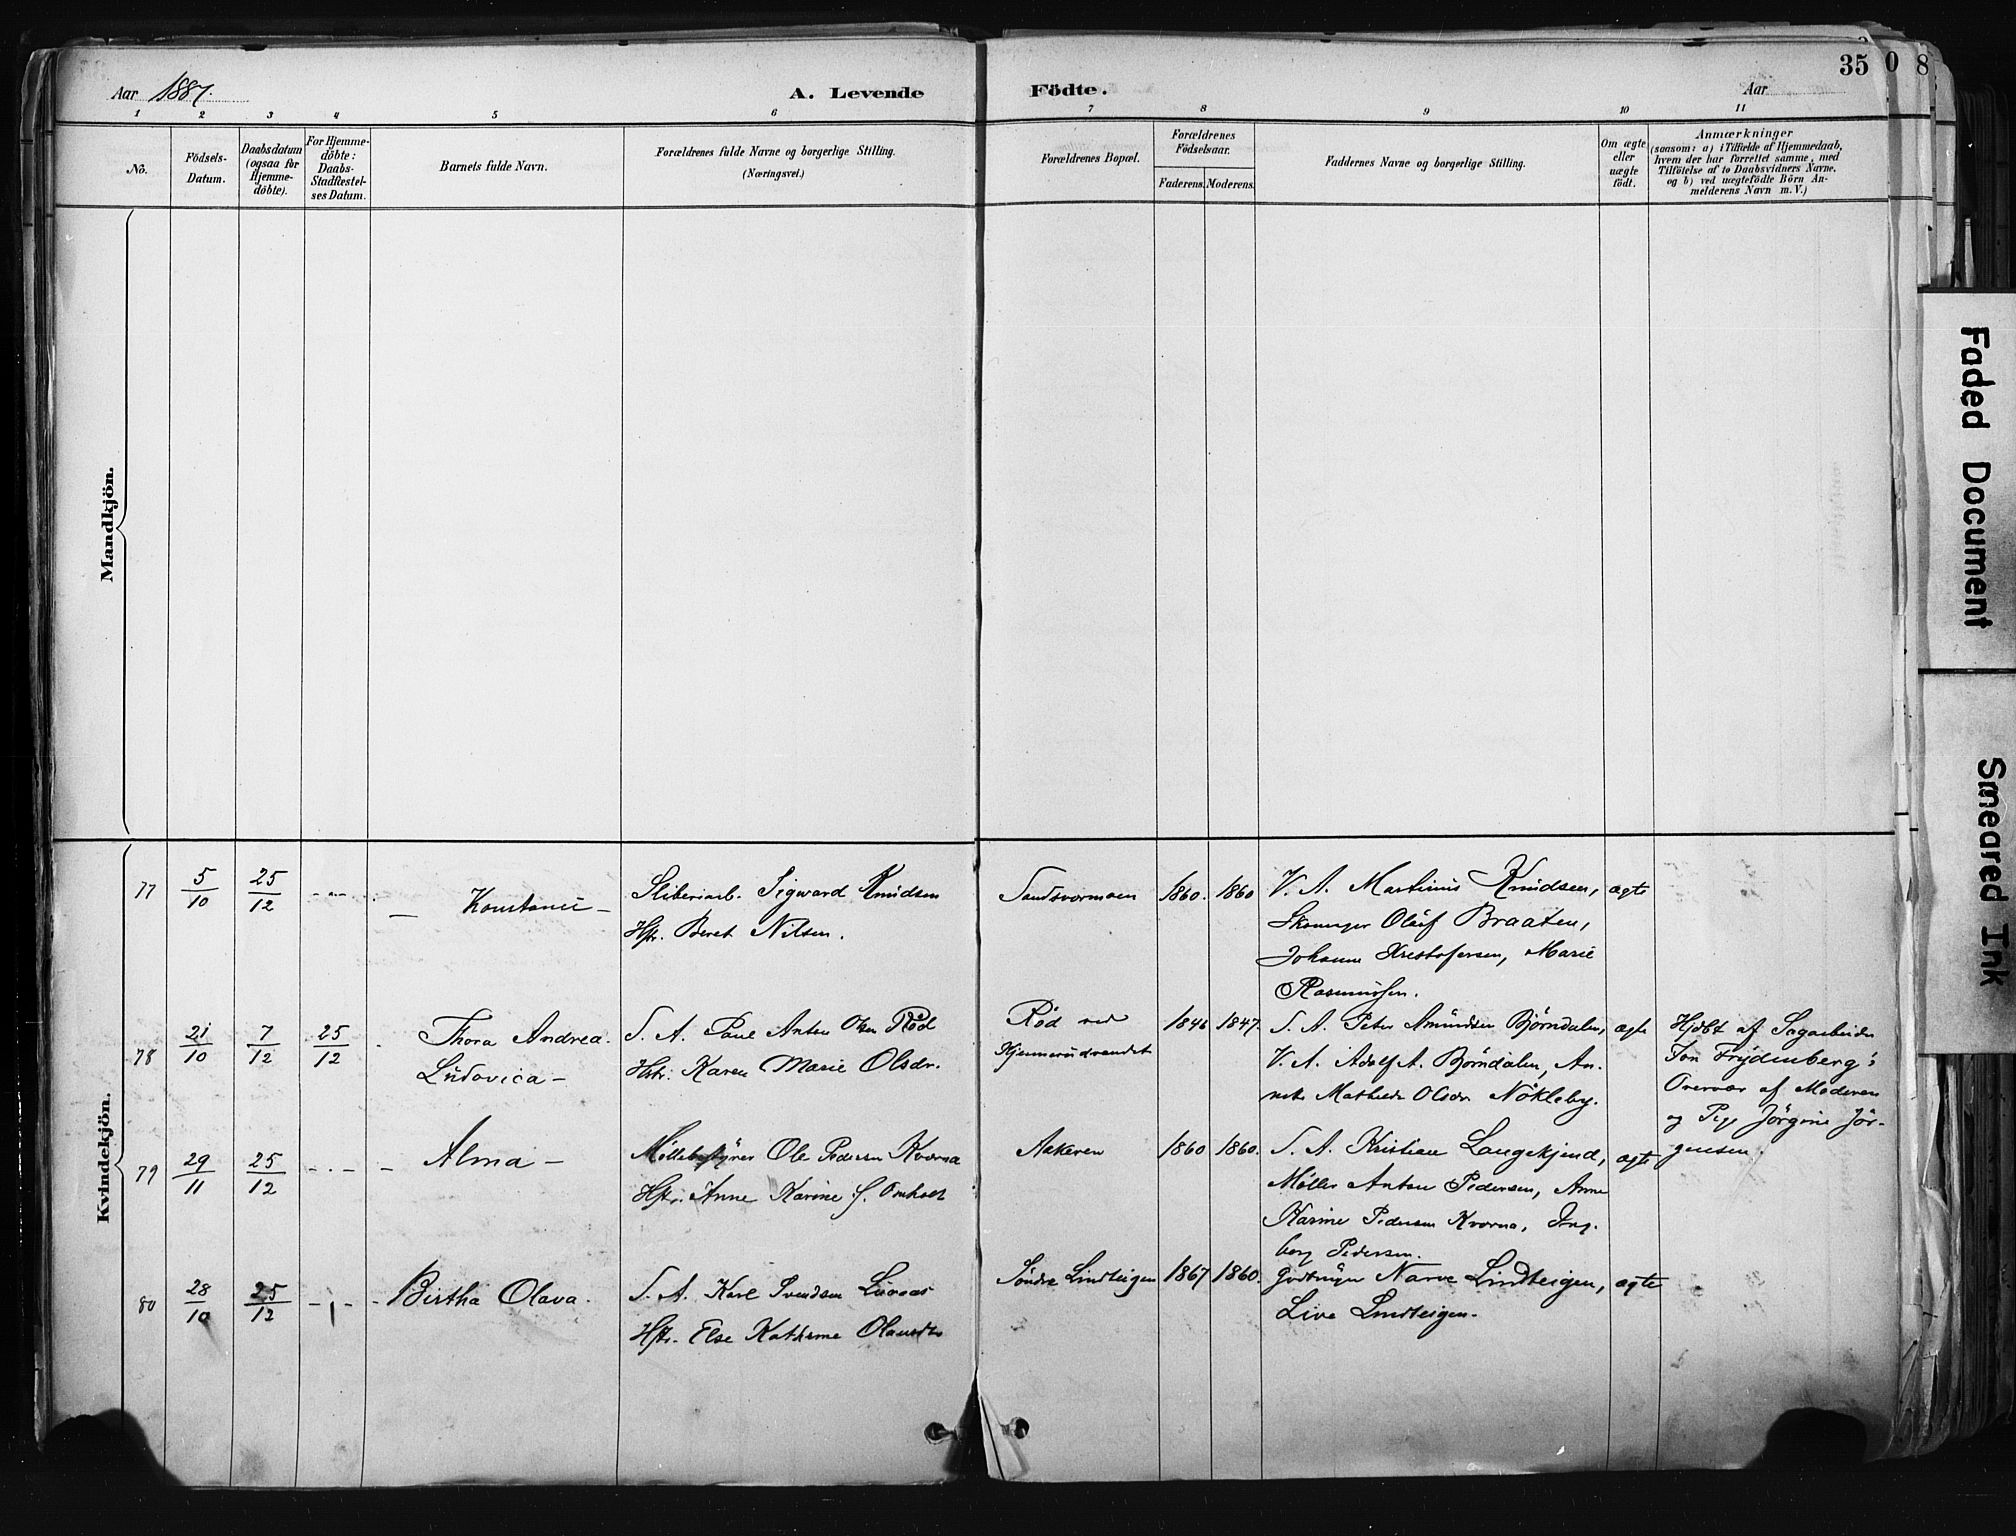 Aar 1887.
A. Levende
Födte.
Aar
35
0
8
1 2 3 4 5 6 7 8 9 10 11
No.
Födsels-
Datum.
Daabsdatum
(ogsaa for
Hjemme-
döbte).
For Hjemme-
döbte:
Daabs-
Stadfæstel-
ses Datum.
Barnets fulde Navn.
Forældrenes fulde Navne og borgerlige Stilling.
(Næringsvei.)
Forældrenes Bopæl.
Forældrenes
Födselsaar.
Faderens. Moderens.
Faddernes Navne og borgerlige Stilling.
Om ægte
eller
uægte
födt.
Anmærkninger
(saasom: a) i Tilfælde af Hjemmedaab,
hvem der har forrettet samme, med
Tilföielse af to Daabsvidners Navne,
og b) ved uægtefödte Börn An-
melderens Navn m. V.)
Mandkjön.
Kvindekjön.
77 5/10 25/12 - - - Konstance -
Sliberiarb. Sigward Knudsen
Hstr. Beret Nilsen.
Sandsvormoen 1860. 1860
V. A. Martinus Knudsen,
Olauf Braaten,
Johanne Kristofersen, Marie
Rasmussen.
ægte
78 21/10 7/12 25/12 Thora Andrea
Ludovica -
S. A. Paul Anton Olsen Röd
Hstr. Karen Marie Olsdr.
Röd ved
Kjennerudvandet
1846 1847.
S. A. Peter Amundsen Björndalen,
V. A. Adolf A. Björndalen, An-
nette Mathilde Olsdr. Nökleby.
ægte
Hjdbt af Sagarbeider
Jon Frydenberg i
Overvær af Moderen
og Pige Jörgine Jör-
gensen.
79 29/11 25/12 - - - Alma -
Möllebestyrer Ole Pedersen Kværna
Hstr. Anne Karine f. Omholt
Aakeren 1860 1860.
S. A. Kristian Langekjend,
Möller Anton Pedersen, Anne
Karine Pedersen Kværna, Ing-
borg Pedersen.
ægte
80 28/10 25/12 - - - Birtha Olava.
S. A. Karl Svendsen
Hstr. Else Kathrine
Söndre Lindteigen 1867 1860.
Gudbrugn Narve Lindteigen,
Live Lindteigen.
ægte
Faded Document
Smeared Ink